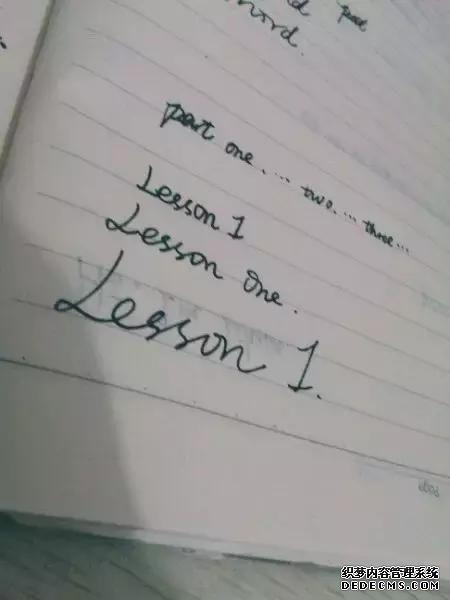 part one.... two.... three...
Lesson 1
Lesson One.
Lesson 1.
织梦内容管理系统
DEDECMS.COM